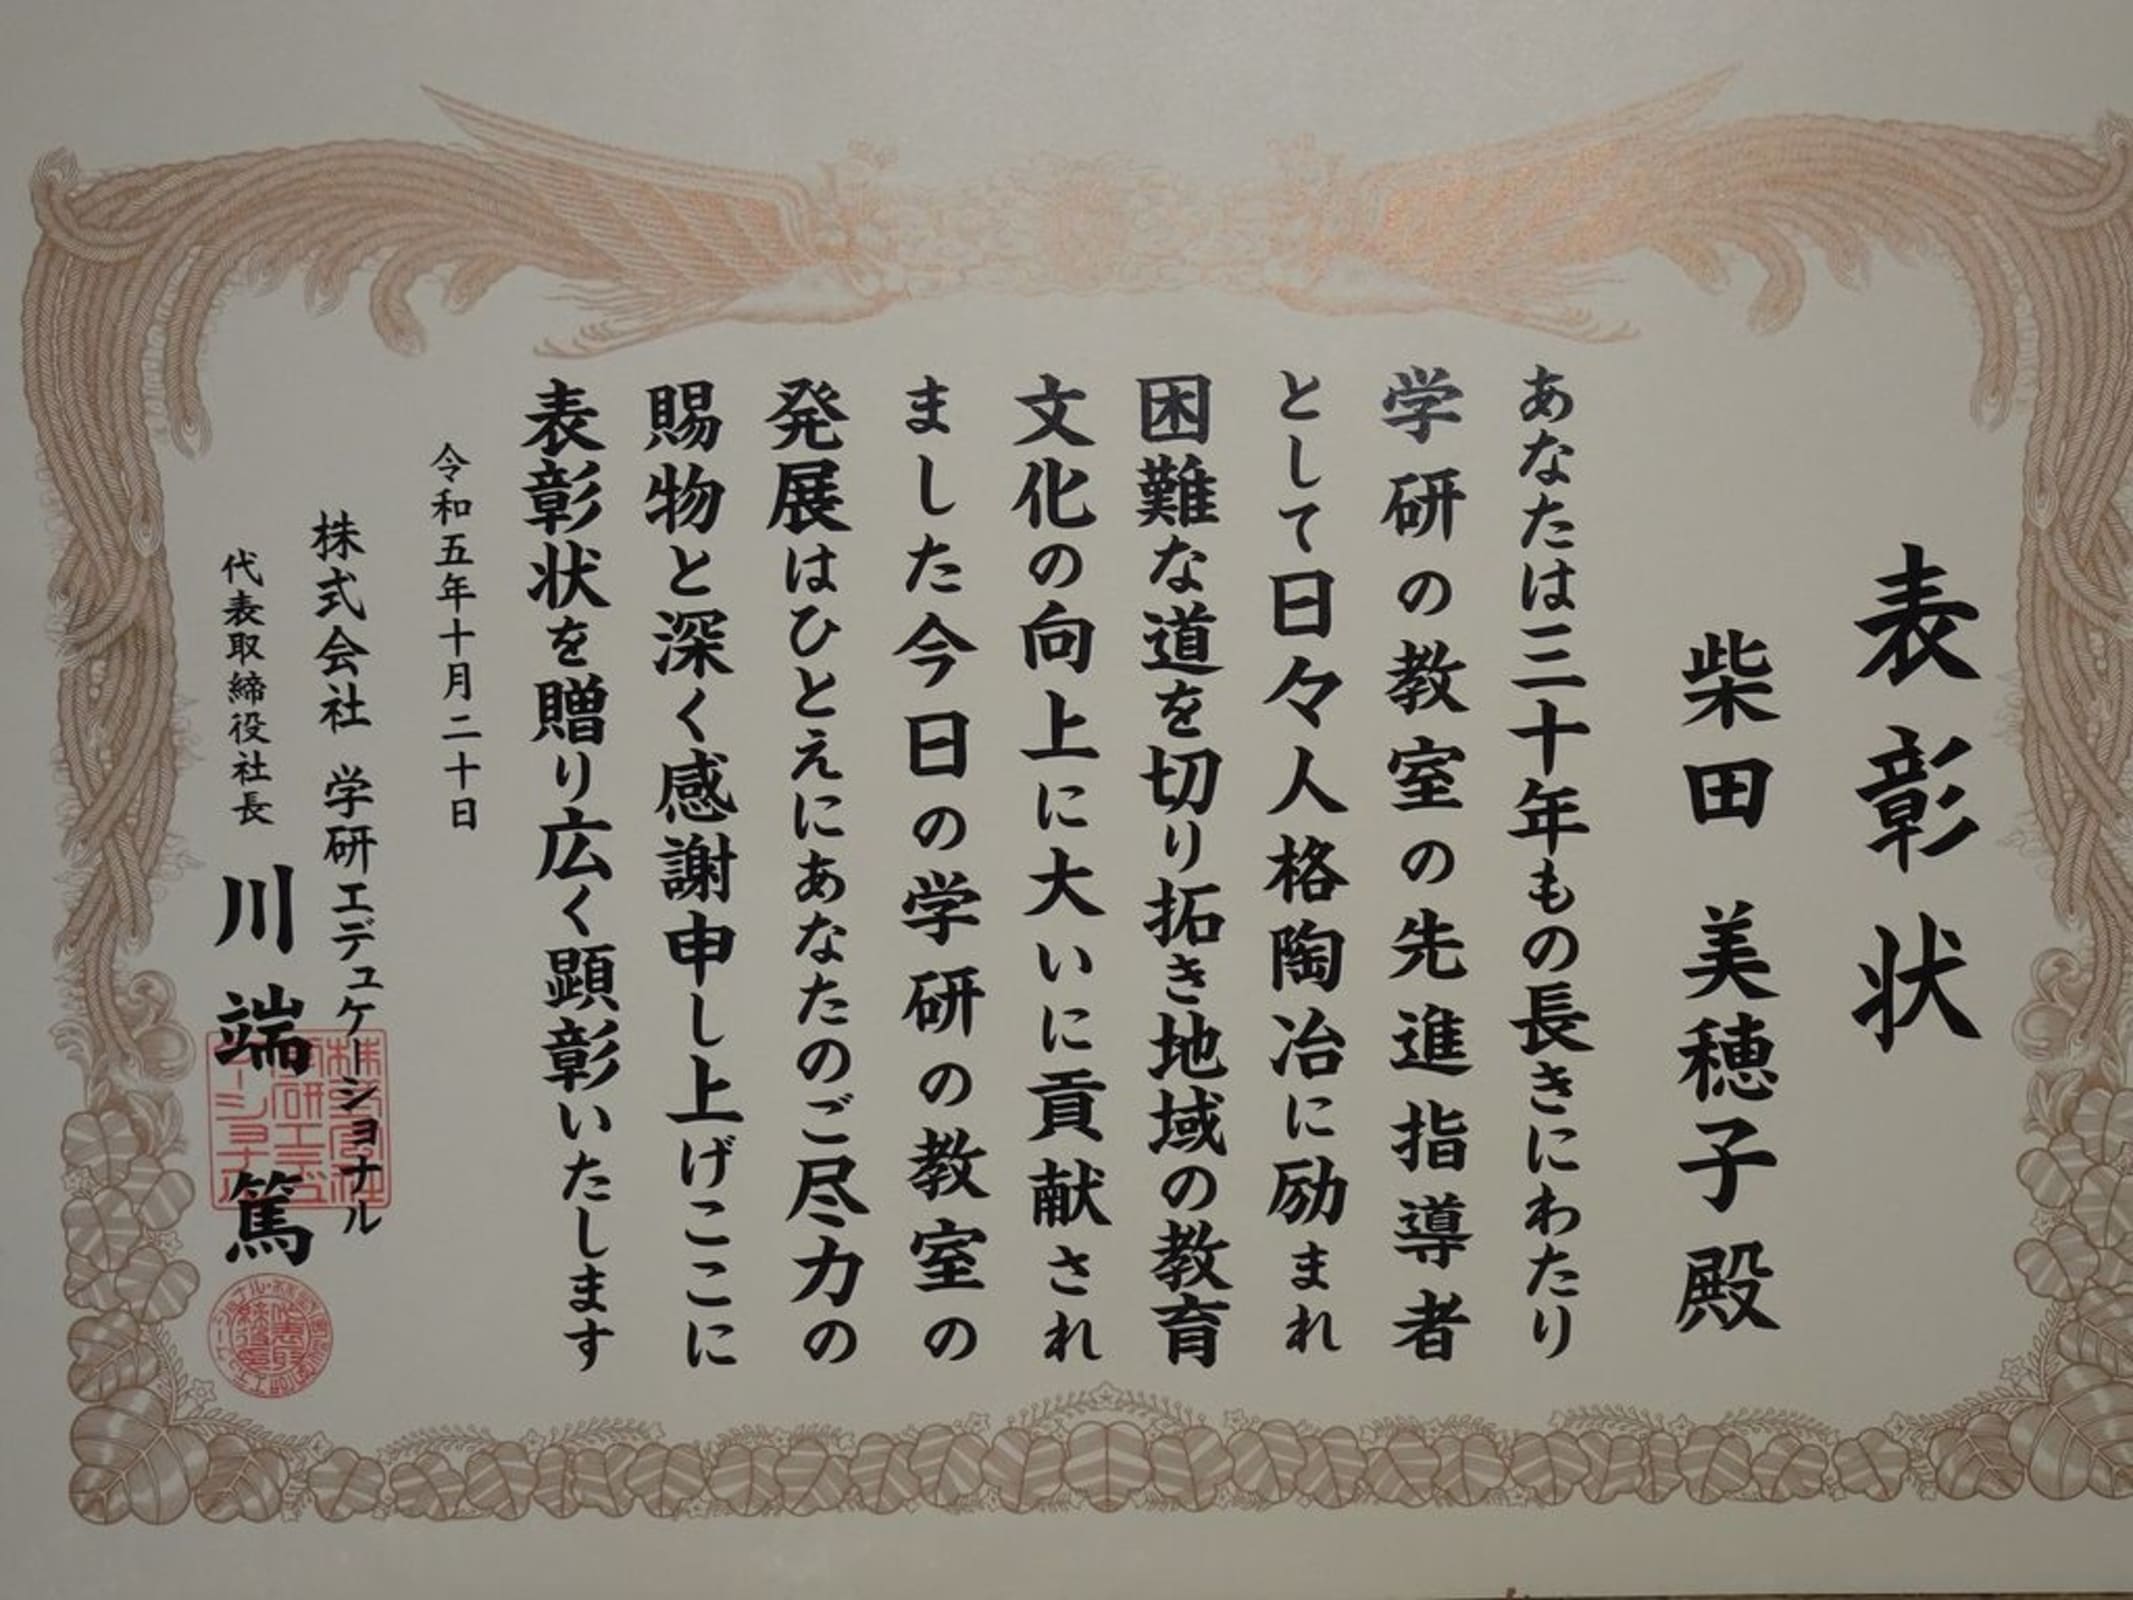 表彰状
柴田 美穂子 殿
あなたは三十年もの長きにわたり
学研の教室の先進指導者
として日々人格陶冶に励まれ
困難な道を切り拓き地域の教育
文化の向上に大いに貢献され
ました今日の学研の教室の
発展はひとえにあなたのご尽力の
賜物と深く感謝申し上げここに
表彰状を贈り広く顕彰いたします
令和五年十月二十日
株式会社 学研エデュケーショナル
代表取締役社長 川端 篤